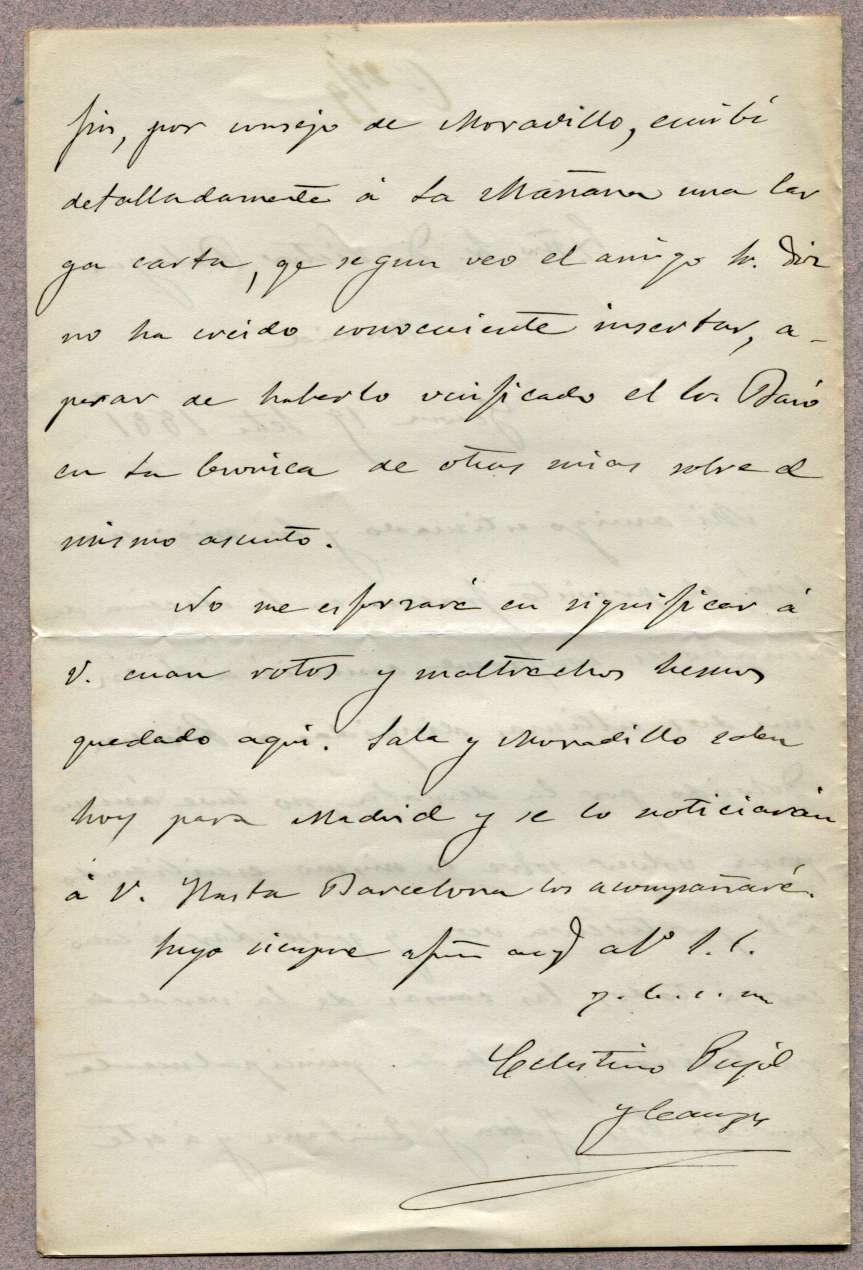 fin, por consejo de Moradillo, escribí
detalladamente á La Mañana una lar
ga carta, qe segun veo el amigo Sr. Diz
no ha creido conveniente insertar, a-
pesar de haberlo verificado el Sr. Baró
en La Crónica de otras mias sobre el
mismo asunto.
No me esforzaré en significar á
V. cuan rotos y maltrechos hemos
quedado aquí. Sala y Moradillo salen
hoy para Madrid y se lo noticiarán
á V. Hasta Barcelona los acompañaré.
Suyo siempre afmo amº S. S.
q. b. s. m
Celestino Pujol
y Camps